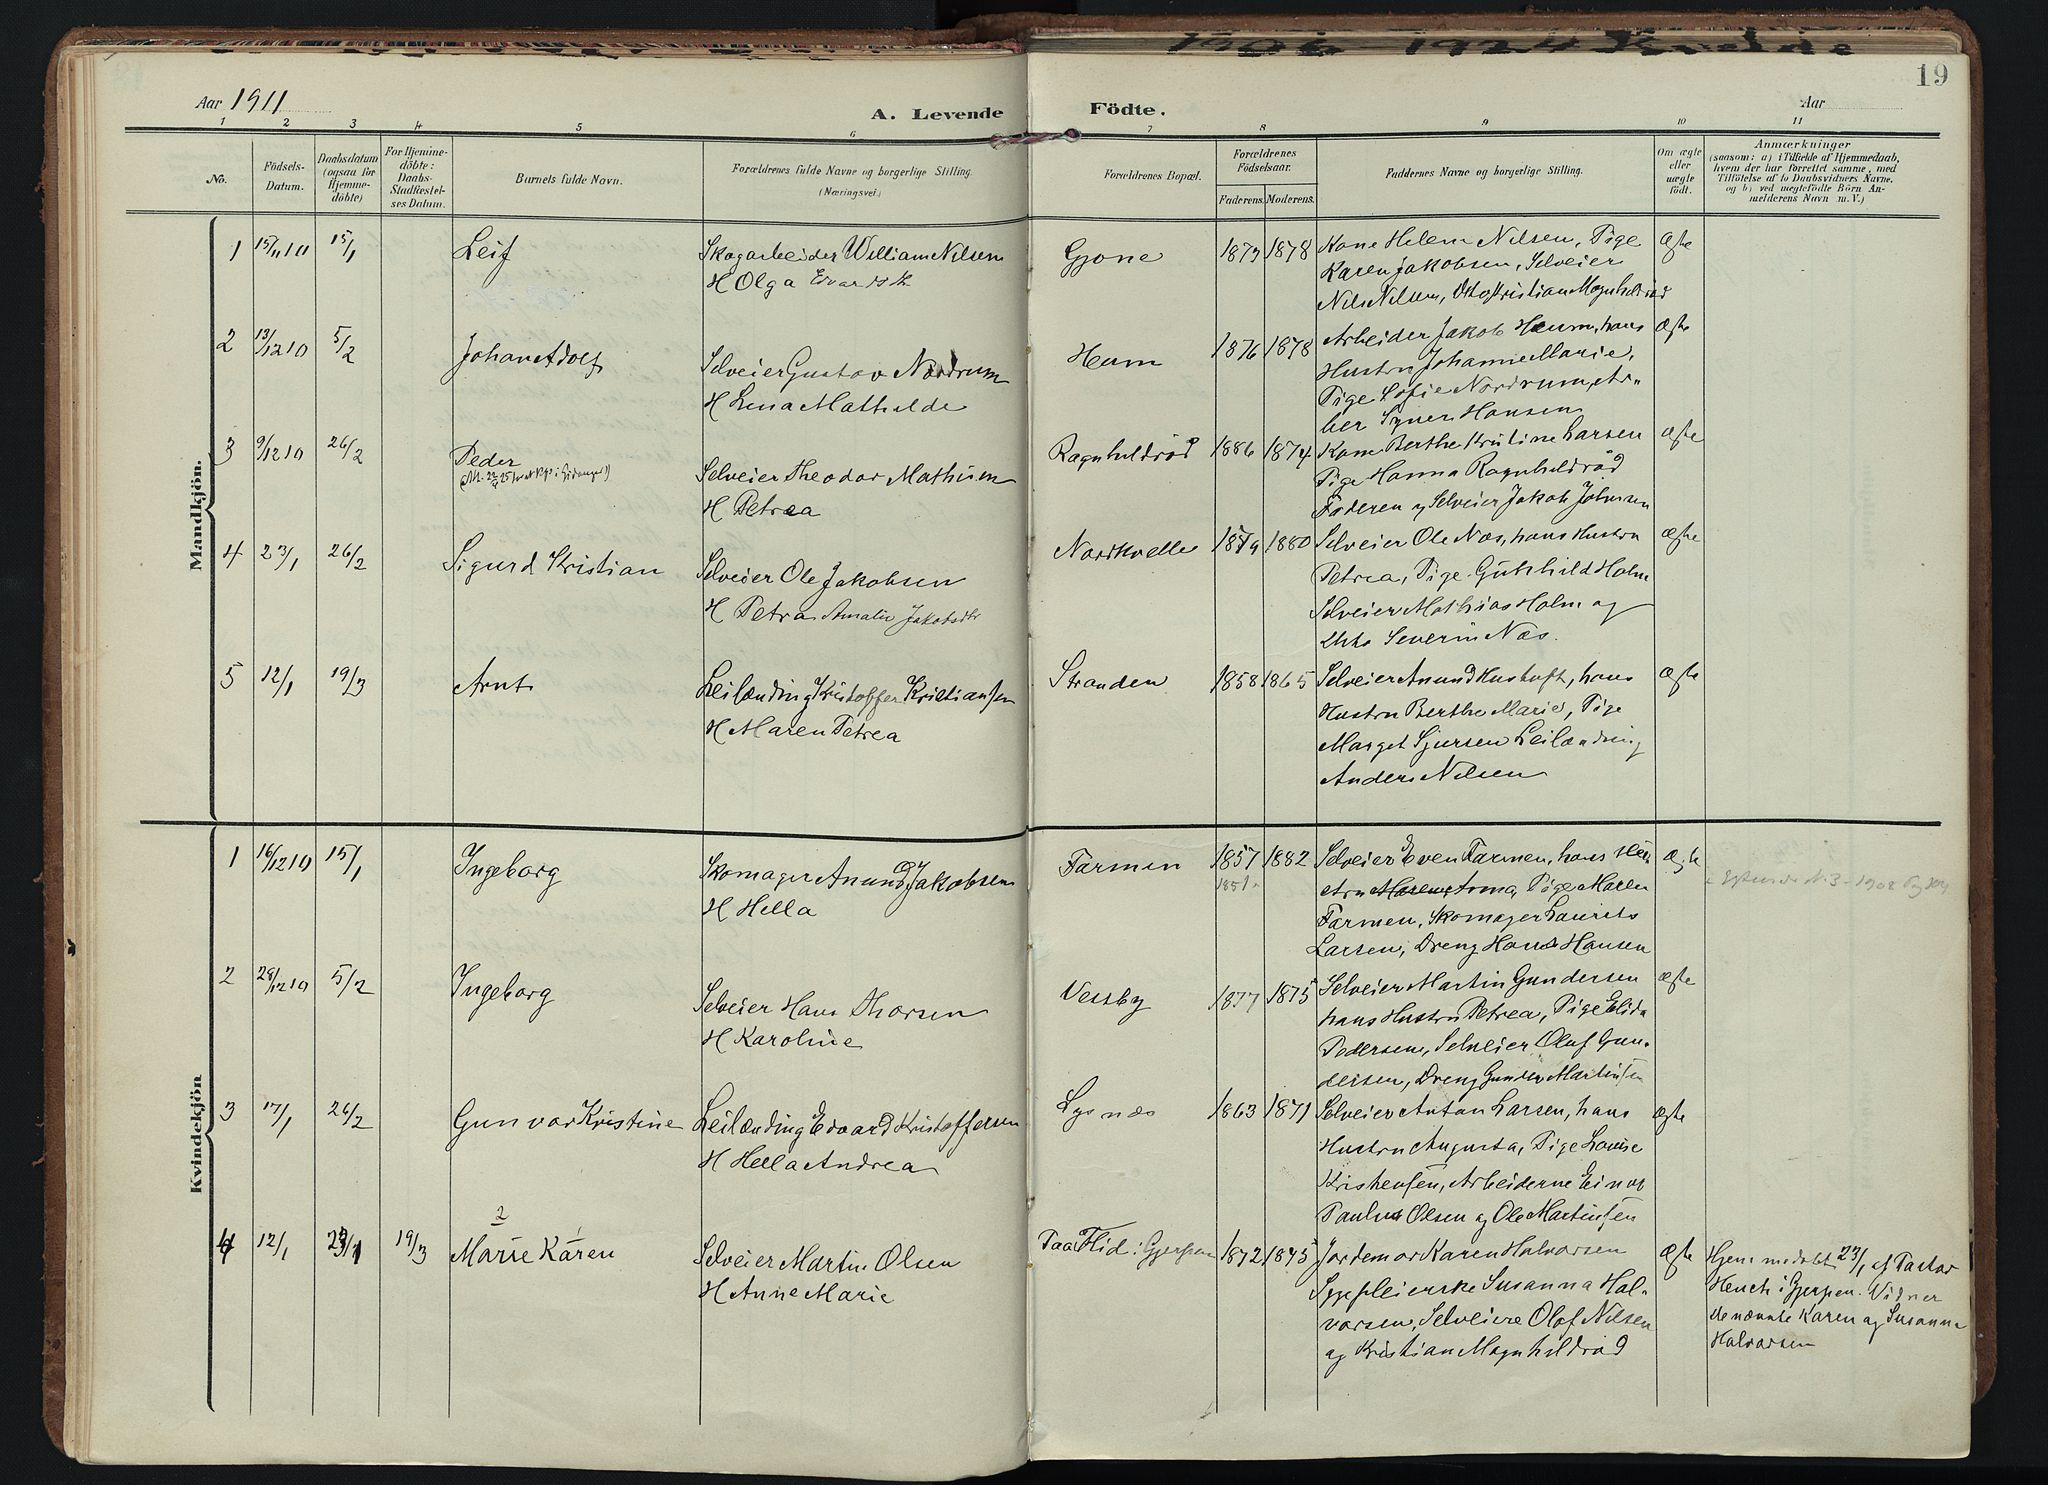 1906 1924 Kvelde
19
Aar 1911
A. Levende Födte.
Aar
1 2 3 4 5 6 7 8 9 10 11
No.
Födsels-
Datum.
Daabsdatum
(ogsaa for
Hjemme-
döbte)
For Hjemme-
döbte:
Daabs-
Stadfæstel-
ses Datum.
Barnets fulde Navn.
Forældrenes fulde Navne og borgerlige Stilling.
(Næringsvei.)
Forældrenes Bopæl.
Forældrenes
Födselsaar.
Faderens. Moderens.
Faddernes Navne og borgerlige Stilling.
Om ægte
eller
uægte
födt.
Anmærkninger
(saasom: a) i Tilfælde af Hjemmedaab,
hvem der har forrettet samme, med
Tilföielse af to Daabsvidners Navne,
og b) ved uægtefödte Börn An-
melderens Navn m. V.)
Mandkjön.
1 15/11 10 15/1 Leif
Skogarbeider William Nilsen
H Olga Edvardsdtr
Gjone 1873 1878
Kone Helene Nilsen, Pige
Karen Jakobsen, Selveier
Nils Nilsen, Otto Kristian Magnhildröd
Ægte
2 13/12 10 5/2 Johan Adolf
Selveier Gustav Nordrum
H Lina Mathilde
Heum 1876 1878
Arbeider Jakob Heum, hans
Hustru Johanne Marie,
Pige Sofie Nordrum, Ar-
ber Hansen
Ægte
3 9/12 10 26/2 Peder
Selveier Theodor Mathisen
H Petrea
Ragnhildröd 1886 1874
Kone Berthe Kristine Larsen
Pige Hanna Ragnhildröd
Faderen og Selveier Jakob Johnsen
Ægte
4 23/1 26/2 Sigurd Kristian
Selveier Ole Jakobsen
H Petra Amalie Jakobsdtr
Nordkvelle 1879 1880
Selveier Ole Næs, hans Hustru
Petrea, Pige Gunhild Holm
Selveier Mathias Holm og
Severin Næs.
Ægte
5 12/1 19/3 Arnt
Leilænding Kristoffer Kristiansen
H Maren Petrea
Stranden 1858 1865
Selveier Anund Hustoft, hans
Hustru Berthe Marie, Pige
Marget Sjursen Leilænding
Anders Nilsen
Ægte
Kvindekjön
1 16/12 10 15/1 Ingeborg
Skomager Anund Jakobsen
H Hella
Farmen 1857 1882
1851
Selveier Even Farmen, hans Hu-
stru Maren Anna, Pige Maren
Farmen, Skomager Laurits
Larsen, Dreng Hans Hansen
Ægte
N. 3 - 1908
2 28/12 10 5/2 Ingeborg
Selveier Hans Thorsen
H Karoline
Vessby 1877 1875
Selveier Martin Gundersen
hans Hustru Petrea, Pige Elida
Pedersen, Selveier Oluf Gun-
dersen, Dreng Gunder Martinsen
Ægte
3 17/1 26/2 Gunvor Kristine
Leilænding Edvard Kristoffersen
H Hella Andrea
Lysnæs 1863 1871
Selveier Anton Larsen, hans
Hustru Augusta, Pige Louise
Kristensen, Arbeiderne Einar
Paulus Olsen og Ole Martinsen
Ægte
2 1
4 12/1 23/1 19/3 Marie Karen
Selveier Martin Olsen
H Anne Marie
Paa Flid i Gjerpen 1872 1875
Jordemor Karen Halvorsen
Sygepleierske Susanna Hal-
vorsen, Selveiere Olaf Nilsen
og Kristian Magnhildröd
Ægte
Hjemmedöbt 23/1 af Pastor
Hench i Gjerpen. Vidner
de nævnte Karen og Susanna
Halvorsen